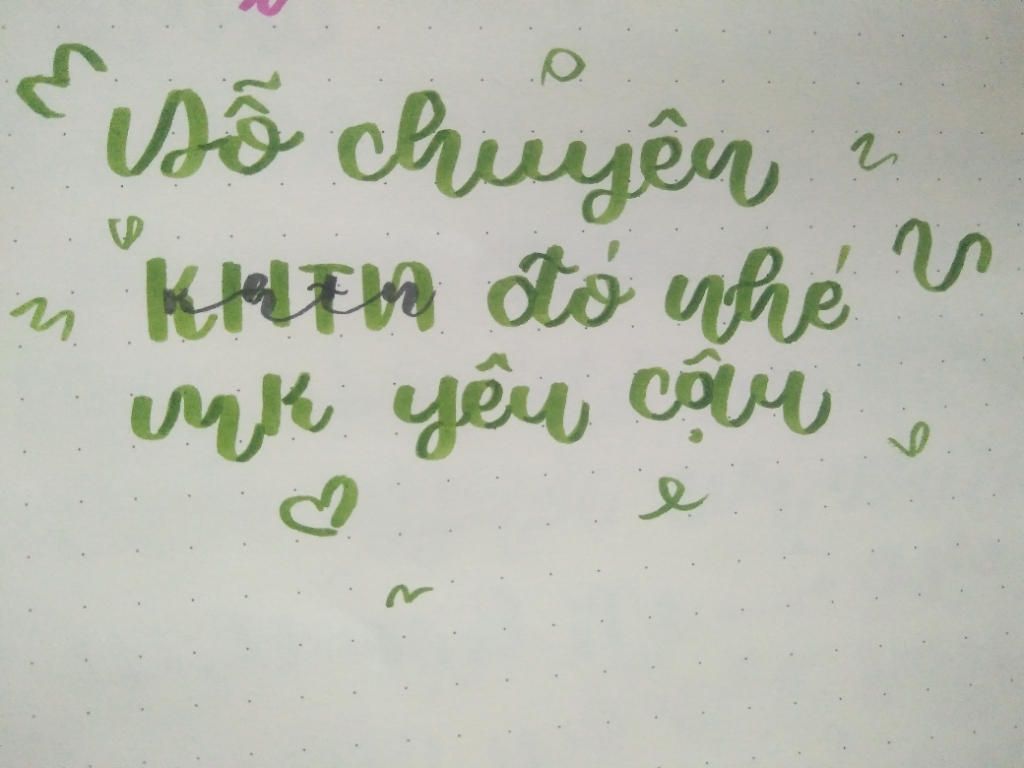 Đỗ chuyên
KHTN khtn đó nhé
mk yêu cậu